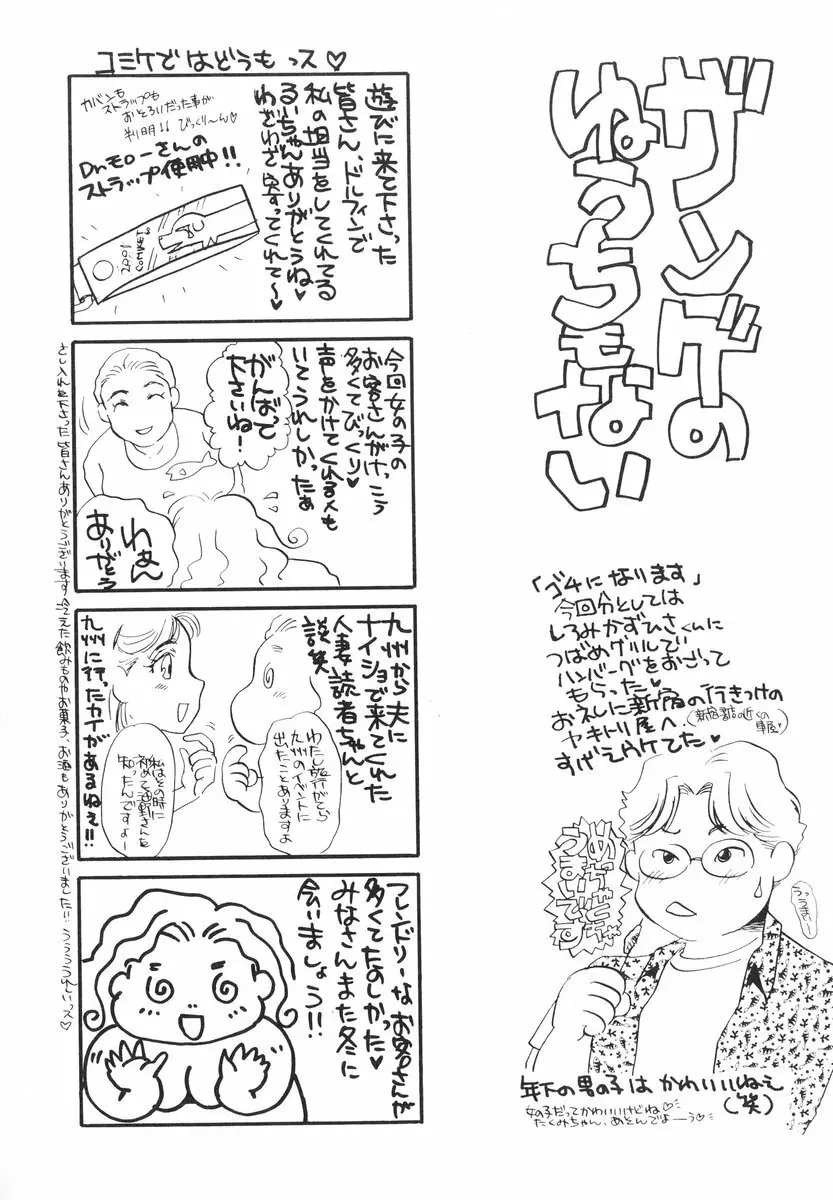 ガンデの
ぬうちもない
「ゴチになります」
今回分としては
しろみかずひさくんに
つばめグリルで
ハンバーグをおごって
もらった♥
お礼に新宿の行きつけの
ヤキトリ屋へ。
すげえウケてた♥
めっちゃくちゃ
うまいです
うっうまい…
年下の男の子は かわいいねぇ
(笑)
女の子だってかわいいけどね♡
たくみちゃん、あそんでよーう♡
コミケで はどうも っス♡
遊びに来て下さった
皆さん、ドルフィンで
私の担当をしてくれてる
るいちゃんありがとうね♥
わざわざ寄ってくれて〜♥
カバンも
ストラップも
おそろいだった事が
判明!! びっくり〜ん♡
Dr.モローさんの
ストラップ使用中!!
2001
今回女の子の
お客さんがけっこう
多くてびっくり♥
声をかけてくれる人も
いてうれしかったぁ
がんばって
下さいね!
わぁん
ありがとう
九州から夫に
ナイショで来てくれた
人妻読者ちゃんと
談笑
わたし旅行がてら
九州のイベントに
出たことありますよ
私はその時に
知ったんですよー
九州に行ったカイがあるねぇ!!
フレンドリーなお客さんが
多くてたのしかった♥
みなさんまた冬に
会いましょう!!
さし入れを下さった皆さんありがとうございます
飲みものやお菓子、お酒もありがとうございました